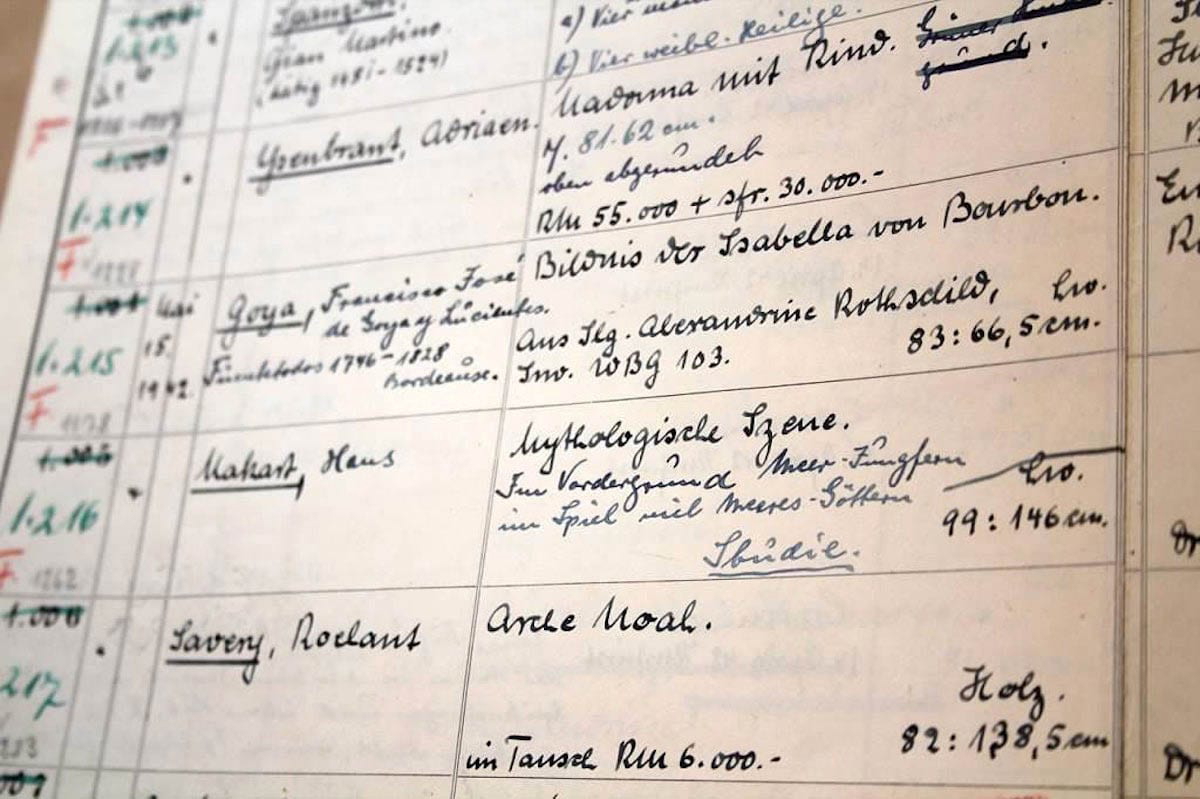 1.213
Spanzotti
Gian Martino.
(tätig 1481-1524)
a) Vier
b) Vier weibl. Heilige.
1.214
Ysenbrant, Adriaen.
Madonna mit Kind.
H. 81.62 cm.
oben abgerundet
RM 55.000 + sfr. 30.000.-
1.215
Mai
15.
1942.
Goya, Francisco José
de Goya y Lucientes.
Fuentetodos 1746-1828
Bordeaux.
Bildnis der Isabella von Bourbon.
Aus Slg. Alexandrine Rothschild, Lw.
Inv. WBG 103. 83:66,5 cm.
1.216
Makart, Hans
Mythologische Szene.
Im Vordergrund Meer-Jungfern Lw.
im Spiel mit Meeres-Göttern
99:146 cm.
Studie.
217
Savery, Roelant
Arche Noah.
Holz.
im Tausch RM 6.000.- 82:138,5 cm